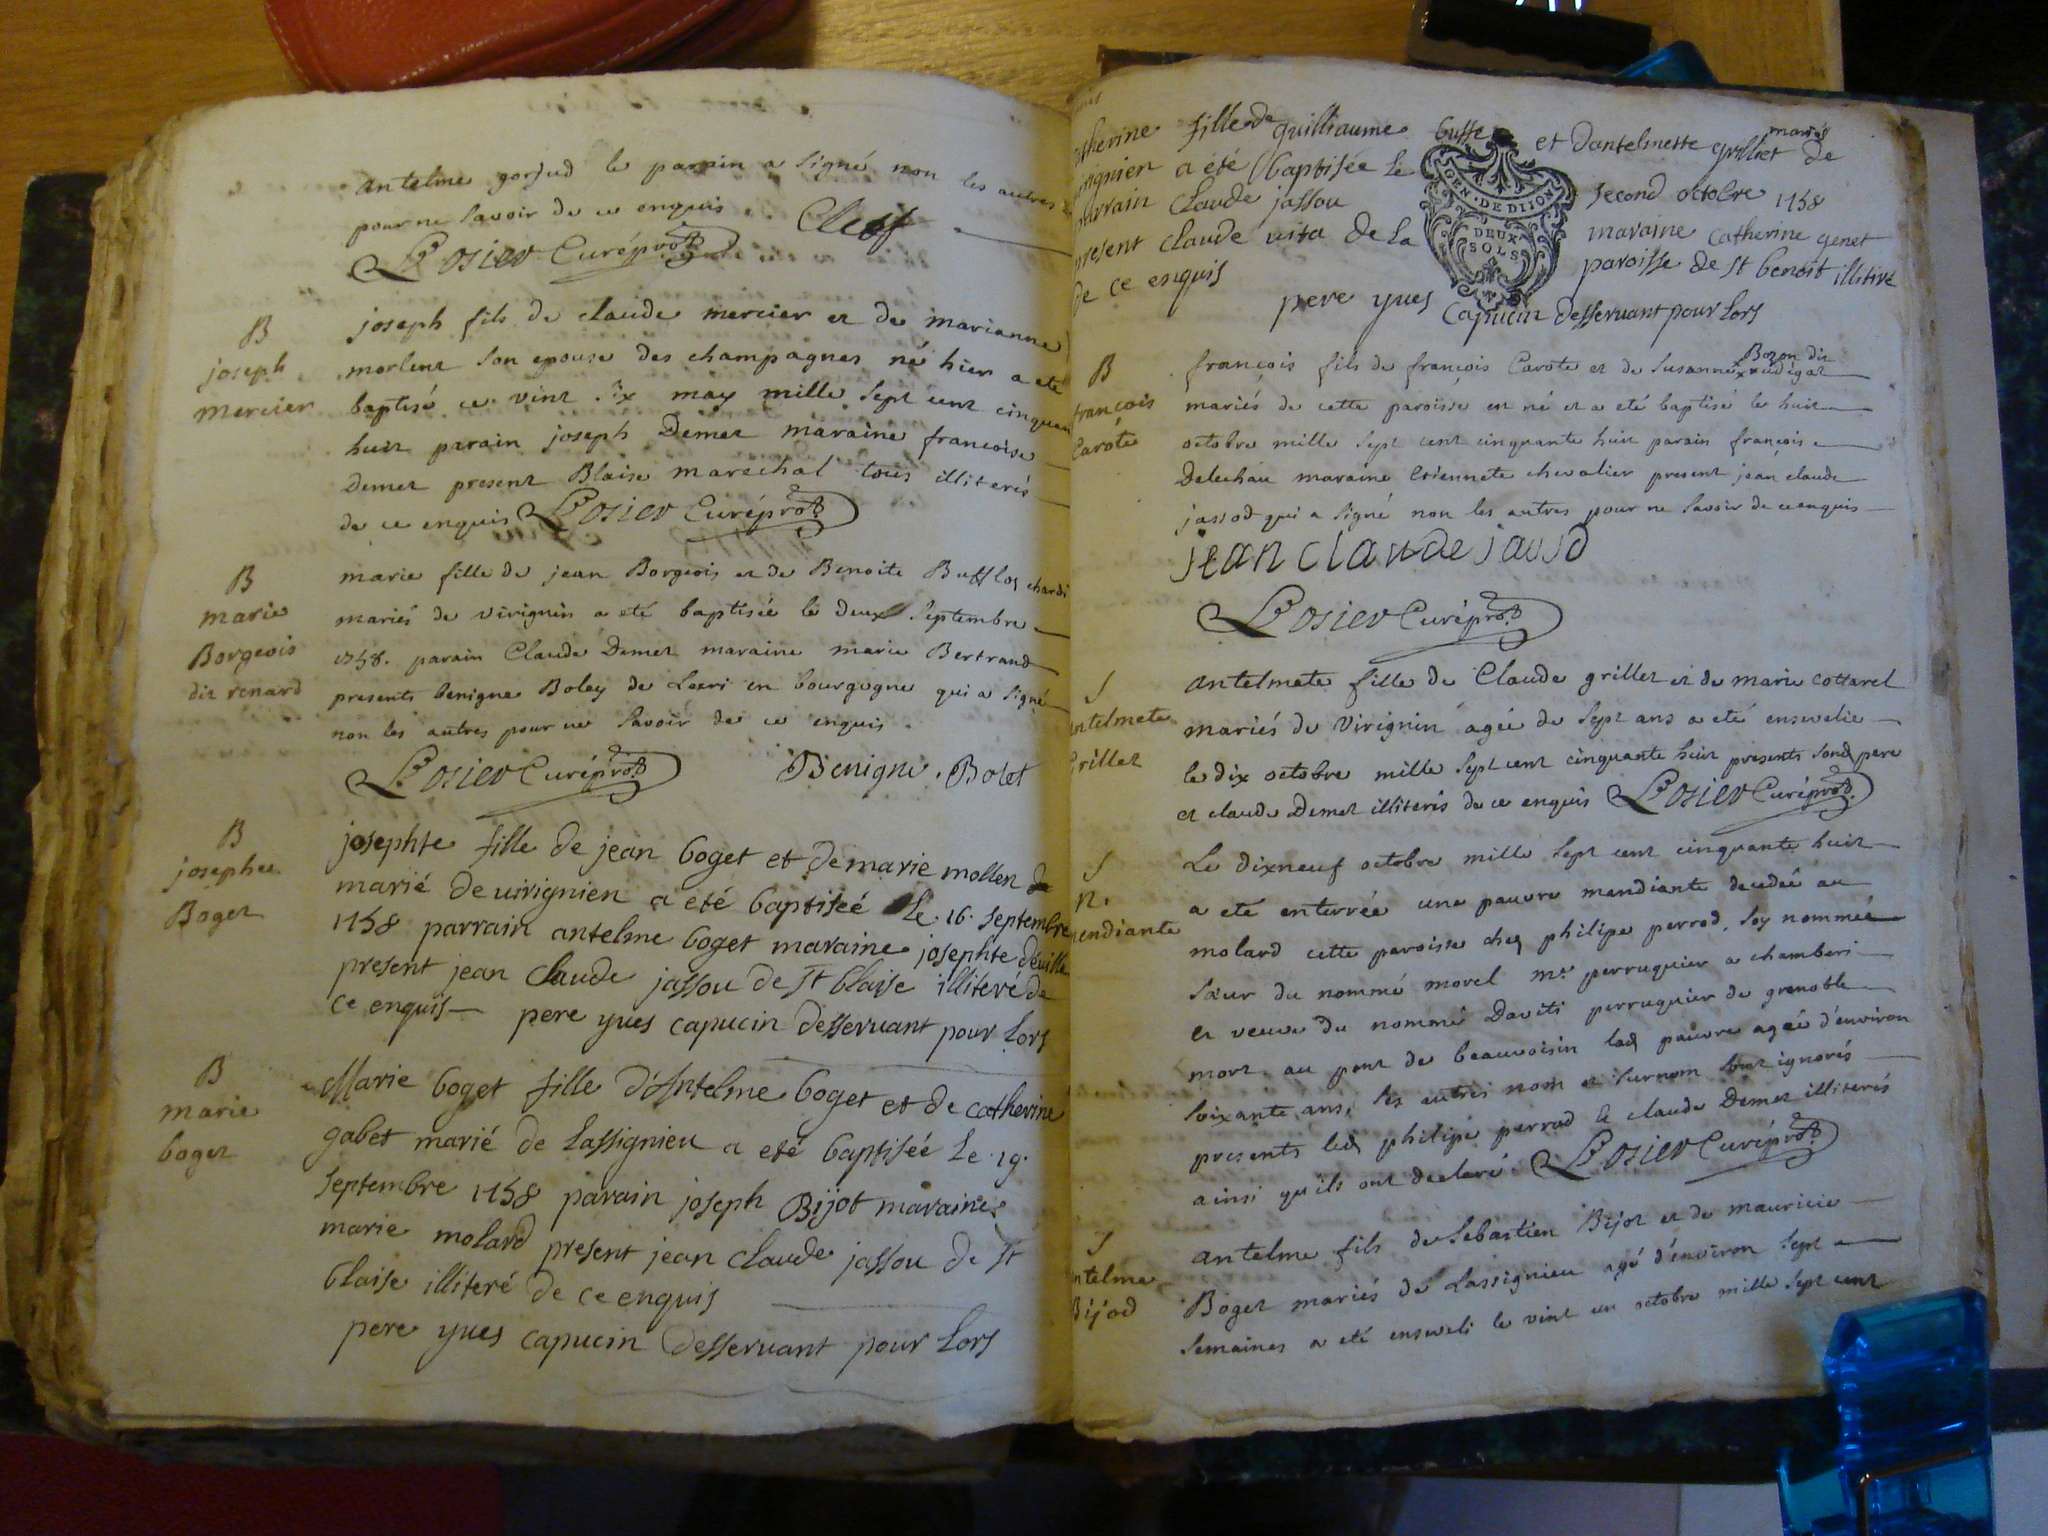 antelme gorjud le parain a signé non les autres
pour ne savoir de ce enquis
L'Osier Curéprod Clerf
B
joseph
mercier
joseph fils de claude mercier et de marianne
morlent son epouse des champagnes né hier a eté
baptisé ce vint six may mille sept cent cinquan
huit parain joseph Demet maraine francoise
Demet present Blaise marechal tous illiterés
de ce enquis L'Osier Curéprod
B
marie
Borgeois
dit renard
marie fille de jean Borgeois et de Benoite Buffloz chardi
mariés de virignin a eté baptisée le deux septembre
1758. parain Claude Demet maraine marie Bertrand
presents benigne Boley de en bourgogne qui a signé
non les autres pour ne savoir de ce enquis
L'Osier Curéprod Benigne Bolet
B
josephte
Boget
josephte fille de jean boget et de marie mollen de
marié de virignien a eté baptiseé Le 16. septembre
1758 parrain antelme boget maraine josephte déville
present jean claude jassou de St blaise illiteré de
ce enquis pere yues capucin desseruant pour Lors
B
marie
boget
Marie boget fille d'Antelme boget et de catherine
gabet marié de Lassignieu a eté baptiseé Le 19.
septembre 1758 parain joseph Bijot maraine
marie molard present jean claude jassou de St
blaise illiteré de ce enquis
pere yues capucin desseruant pour Lors
atherine fille de guilliaume busse et dantelmette grillet mariés de
irignien a été baptisée Le second octobre 1758
parrain Claude jassou maraine catherine genet
present claude uita de La paroisse de St benoit illitire
de ce enquis
pere yues capucin desseruant pour Lors
GEN. DE DIJON
DEUX
SOLS
B
françois
Carote
françois fils de françois Carote et de Susanne Bozon dit
mariés de cette paroisse est né et a eté baptisé le huit
octobre mille sept cent cinquante huit parain françois
Delechau maraine Etiennete chevalier present jean claude
jassod qui a signé non les autres pour ne savoir de ce enquis
jean claude jausd
L'Osier Curéprod
S
antelmete
Grillet
antelmete fille de Claude grillet et de marie cottarel
mariés de Virignin ageé de sept ans a eté ensevelie
le dix octobre mille sept cent cinquante huit presents sond pere
et claude Demet illiterés de ce enquis L'Osier Curéprod
S
n.
mendiante
Le dixneuf octobre mille sept cent cinquante huit
a eté enterrée une pauvre mendiante decedeé au
molard cette paroisse chez philipe perrod, soy nommée
sœur du nommé morel me perruquier a chamberi
et veuve du nommé Daviti perruquier de grenoble
mort au pont de beauvoisin lad pauvre ageé d'environ
soixante ans, ses autres nom et surnom sont ignorés
presents led philipe perrod et claude Demet illiterés
ainsi qu'ils ont declaré L'Osier Curéprod
S
antelme
Bijod
antelme fils de Sebastien Bijot et de mauricie
Boget mariés de Lassignieu agé d'environ sept
semaines a eté enseveli le vint un octobre mille sept cent